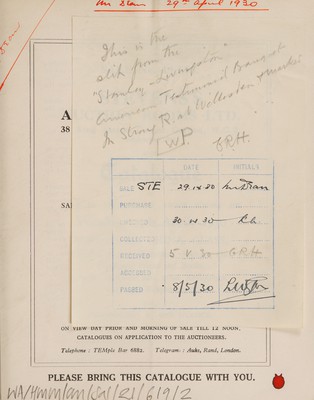 Mr Stow 29th April 1930
This is the
slip from the
"Stanley Livingstone"
American Testimonial Banquet
In Strong R. at Willesden + marked
WP. G.R.H.
A
38
SA
DATE INITIALS
SALE STE 29.iv.30
PURCHASE
30.iv.30
COLLECTED
RECEIVED 5 V 30 G.R.H
ACCESSED
PASSED 8/5/30
ON VIEW DAY PRIOR AND MORNING OF SALE TILL 12 NOON.
CATALOGUES ON APPLICATION TO THE AUCTIONEERS.
Telephone : TEMple Bar 6882. Telegram : Auks, Rand, London.
PLEASE BRING THIS CATALOGUE WITH YOU.
WA/HMM/CM/Sal/21/619/2